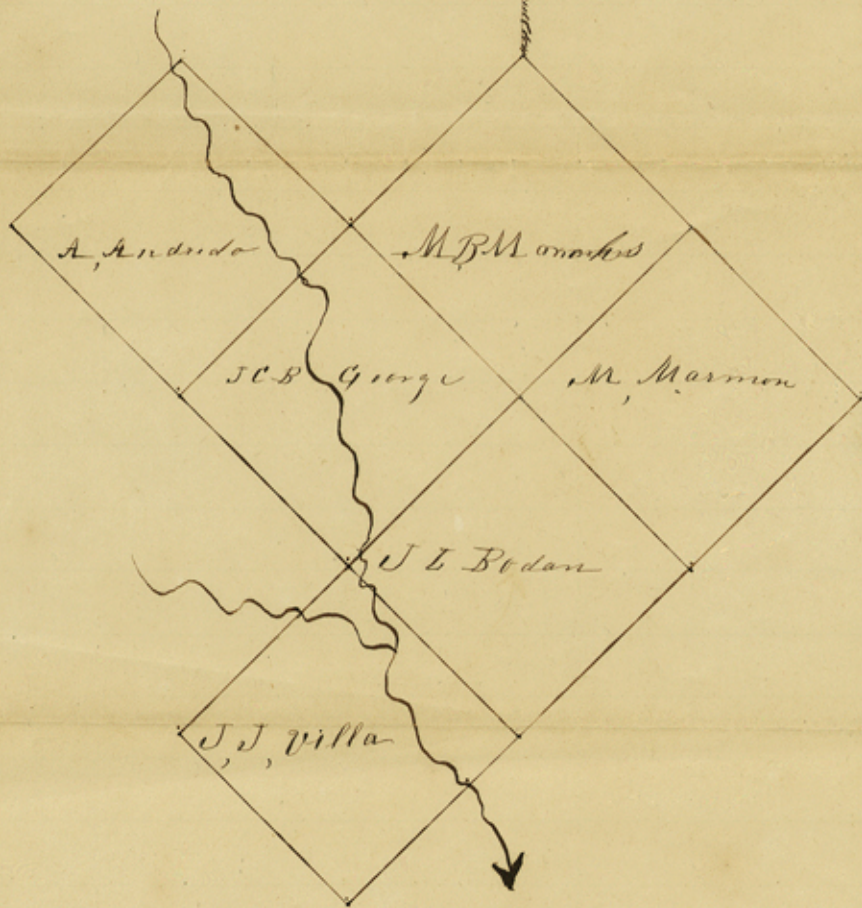 A, Andrada
M, B, M
J C B George
M, Marmon
J L Bodan
J, J, Villa